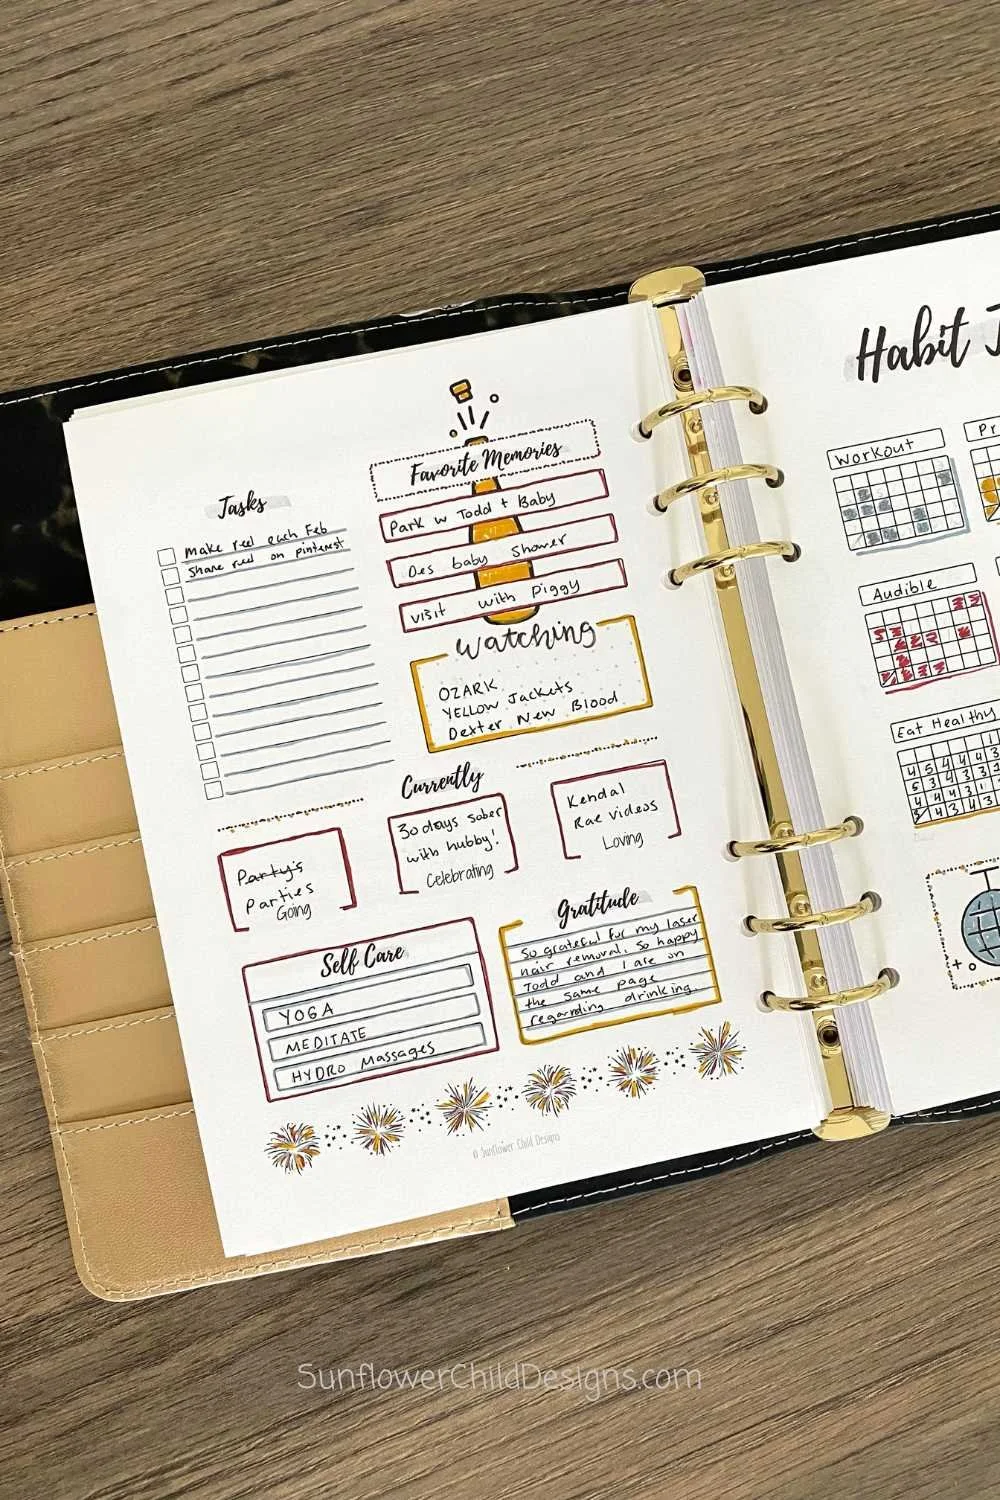 Tasks
make reel each Feb
share reel on pinterest
Favorite Memories
Park w Todd + Baby
Des baby shower
visit with Piggy
watching
OZARK
YELLOW Jackets
Dexter New Blood
Currently
Party's
Parties
Going
30 days sober
with hubby!
Celebrating
Kendal
Rae videos
Loving
Self Care
YOGA
MEDITATE
HYDRO Massages
Gratitude
So grateful for my laser
hair removal. So happy
Todd and I are on
the same page
regarding drinking.
© Sunflower Child Designs
Habit
Workout
Pr
Audible
Eat Healthy
4 5 4 4 4 3
SunflowerChildDesigns.com